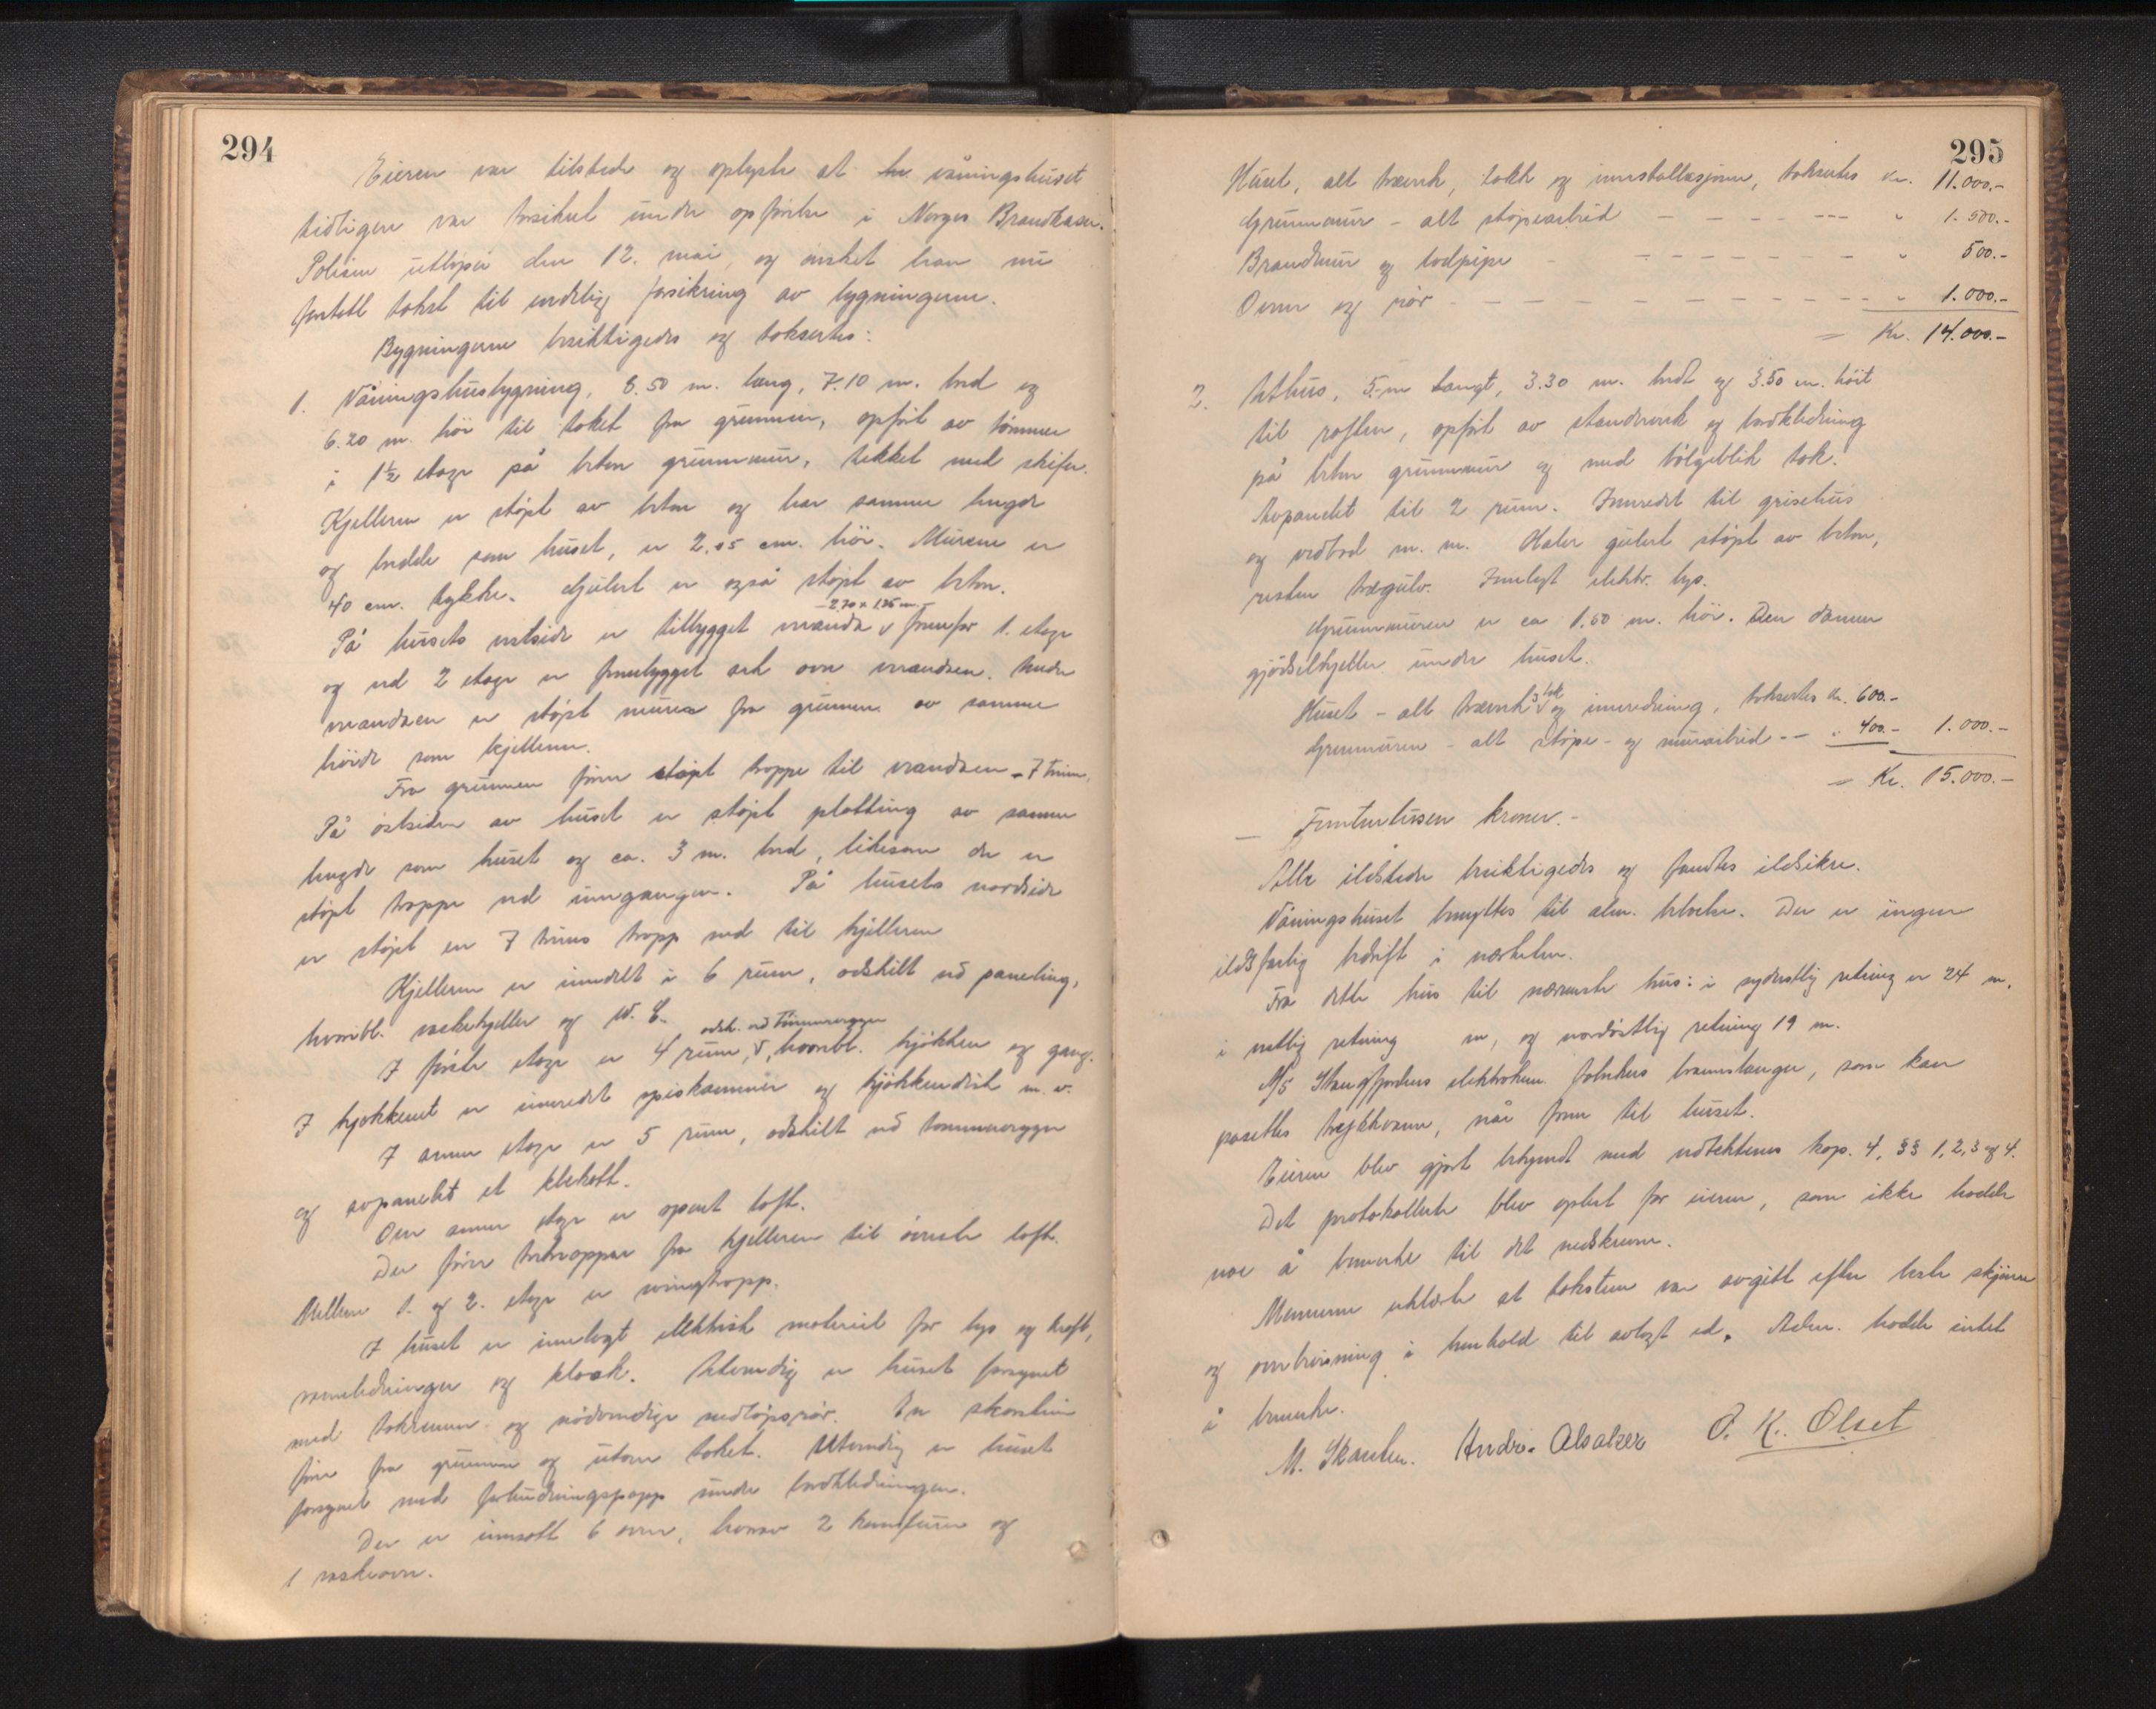 294
Eieren var tilstede og oplyste at våningshuset
tidligere var forsikret under opførelse i Norges Brandkasse.
Polisen utløper den 12. mai, og ønsket han nu
foretatt takst til endelig forsikring av bygningerne.
Bygningerne besiktigedes og takseredes:
1. Våningshusbygning, 8.50 m. lang, 7.10 m. bred og
6.20 m. høi til taket fra grunnen, opført av tømmer
i 1½ etage på beton grunnmur, tekket med skifer.
Kjelleren er støpt av beton og har samme lengde
og bredde som huset, er 2.15 cm. høi. Murene er
40 cm. tykke. Gulvet er også støpt av beton.
- 2.70 x 1.25 m. -
På husets vestside er tilbygget veranda v fremfor 1. etage
og ved 2 etage er frembygget ark over verandaen. Under
verandaen er støpt murer fra grunnen av samme
høide som kjelleren.
Fra grunnen fører støpt trappe til verandaen - 7 trinn.
På østsiden av huset er støpt platting av samme
lengde som huset og ca. 3 m. bred, likesom der er
støpt trappe ved inngangen. På husets nordside
er støpt en 7 trins trapp ned til kjelleren
Kjelleren er inndelt i 6 rum, adskilt ved paneling,
hvoribl. vaskekjeller og W. C.
adsk. ved tømmervegger
I første etage er 4 rum, v, hvoribl. kjøkken og gang.
I kjøkkenet er innredet spiskammer og kjøkkendisk m. v.
I annen etage er 5 rum, adskilt ved tømmervegger
og avpanelet et klekott.
Over annen etage er åpent loft.
Der fører tretrapper fra kjelleren til øverste loft.
Mellem 1. og 2. etage er svingtrapp.
I huset er innlagt elektrisk materiel for lys og kraft,
vannledninger og kloak. Utvendig er huset forsynet
med takrenner og nødvendige nedløpsrør. En skorstein
fører fra grunnen og utover taket. Utvendig er huset
forsynet med forhudningspapp under bordkledningen.
Der er innsatt 6 ovner, hvorav 2 komfurer og
1 vaskeovn.
295
Huset, alt træverk, takk og innstallasjoner, takseredes kr. 11.000.-
Grunnmur - alt støpearbeid - - - - - - - " 1.500.-
Brandmur og lodpipe - - - - - - - - " 500.-
Ovner og rør - - - - - - - - - - - - " 1.000.-
= Kr. 14.000.-
2. Uthus, 5 m langt, 3.30 m. bredt og 3.50 m. høit
til raften, opført av standverk og bordkledning
på beton grunnmur og med bølgeblik tak.
Avpanelet til 2 rum. Innredet til grisehus
og vedbod m. m. Halve gulvet støpt av beton,
resten trægulv. Innlagt elektr. lys.
Grunnmuren er ca 1.50 m. høi. Den danner
gjødselkjeller under huset.
tak
Huset - alt træverk, v og innredning, takseredes kr. 600.-
Grunnmuren - alt støpe- og murarbeid - - " 400.- 1.000.-
= Kr. 15.000.-
- Femtentusen kroner. -
Alle ildsteder besiktigedes og fandtes ildsikre.
Våningshuset benyttes til alm. beboelse. Der er ingen
ildsfarlig bedrift i nærheten.
Fra dette hus til nærmeste hus: i sydvestlig retning er 24 m,
i vestlig retning m, og nordøstlig retning 19 m.
A/S Stangfjordens elektrokem. fabrikers brannslanger, som kan
påsettes trykkvann, når frem til huset.
Eieren blev gjort bekjendt med vedtektenes kap. 4, §§ 1, 2, 3 og 4.
Det protokollerte blev oplest for eieren, som ikke hadde
noe å bemerke til det nedskrevne.
Mennerne erklærte at taksten var avgitt efter beste skjønn
og overbevisning i henhold til avlagt ed. hadde intet
å bemerke.
M. Skarstein. Andr. Alsaker O. K. Olset